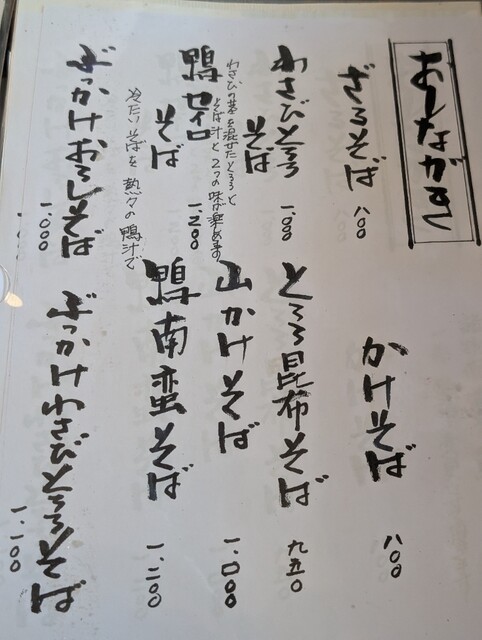 おしながき
ざるそば 八〇〇
かけそば 八〇〇
わさびとろろそば 一、〇〇〇
とろろ昆布そば 九五〇
わさびの茎を混ぜたとろろと
そば汁と2つの味が楽めます
山かけそば 一、〇〇〇
鴨せいろそば 一、二〇〇
鴨南蛮そば 一、二〇〇
冷たいそばを熱々の鴨汁で
ぶっかけおろしそば 一、〇〇〇
ぶっかけわさびとろろそば 一、一〇〇